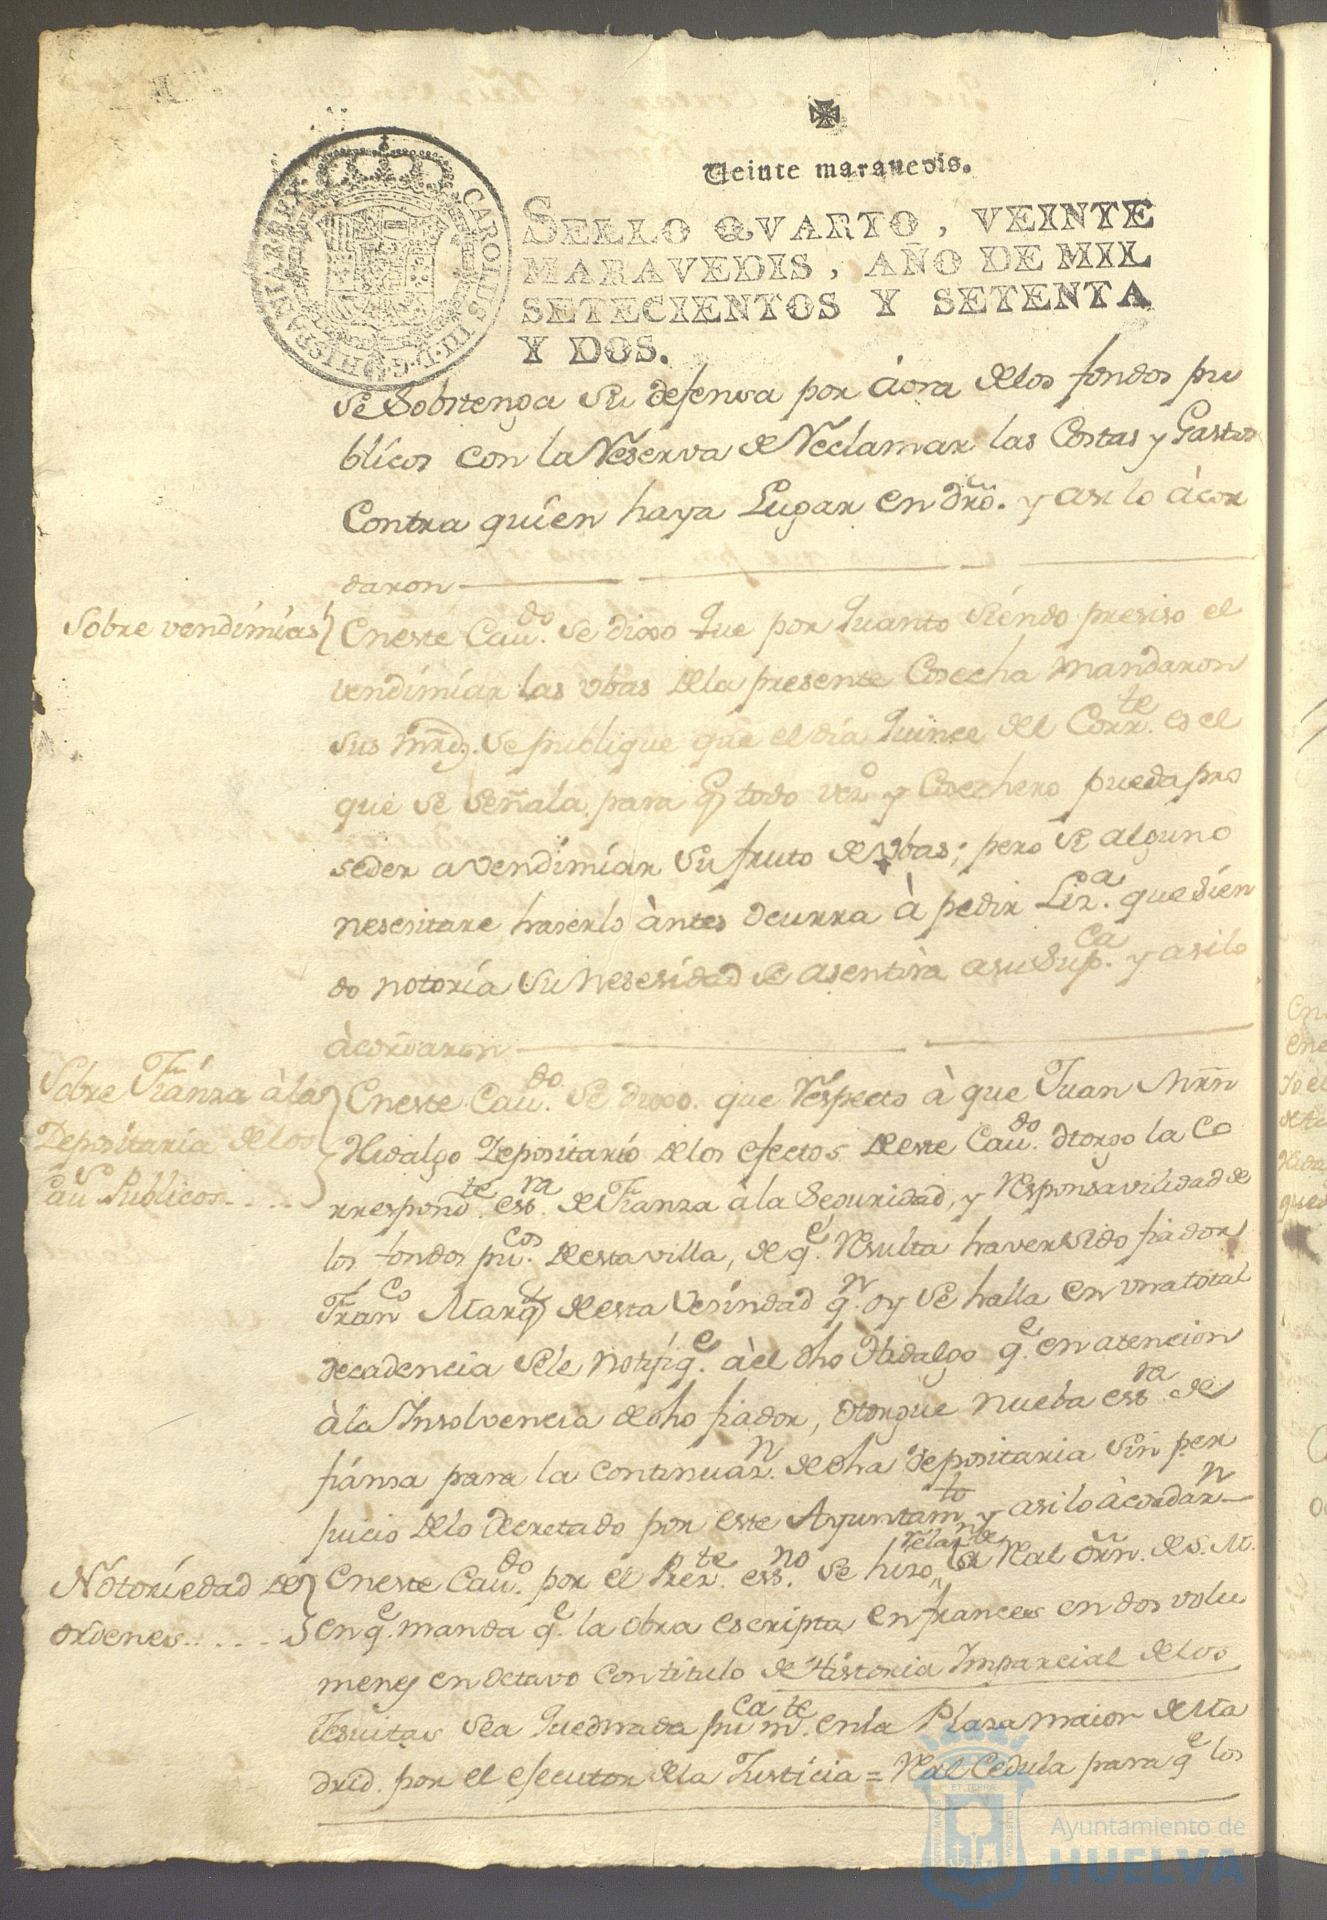 Veinte maravedis.
SELLO QVARTO, VEINTE
MARAVEDIS, AÑO DE MIL
SETECIENTOS Y SETENTA
Y DOS.
CAROLUS III D. G. HISPANIAR REX
se Sobstenga su defensa por aora delos fondos pu
blicos con la Reserva de Reclamar las Costas y Gastos
Contra quien haya Lugar en dro. y asi lo acor
daron
Sobre vendimias
Eneste Cavdo. se dixo que por quanto siendo presiso el
vendimiar las vbas dela presente Cosecha mandaron
sus mrds. se publique que el dia quince del Corrte. es el
que se señala para q todo vezo. y Cosechero pueda pro
seder a vendimiar su fruto de vbas; pero si alguno
nesesitare haserlo àntes ocurra à pedir Liza. que sien
do notoria su nesesidad se asentirà a su supca. y asi lo
àcordaron
Sobre Fianza à la
Depositaria delos
Cau Publicos
Eneste Cavdo. se dixo. que Respecto à que Juan Mrn
Hidalgo Depositario delos efectos deeste Cavdo. otorgo la Co
rrespondte. essra. de Fianza à la Seguridad, y Responsavilidad de
los fondos pucos. desta villa, de qe. Resulta haver sido fiador
Franco Marqz desta Vesindad qn. oy se halla en vna total
decadencia sele notifiqe. àel dho Hidalgo qe. en atencion
à la Insolvencia de dho fiador, otorgue nueba essra. de
fianza para la continuazn. de dha depositaria sin per
juicio delo decretado por este Ayuntamto y asi lo àcordarn
Notoriedad de
ordenes
Eneste Cavdo. por el Prezte. essno. se hizo relante la Real orñ. de S. M.
en qe. manda qe. la obra escripta en frances en dos volu
menes en octavo con titulo de Historia Imparcial de los
Jesuitas sea quemada pucamte. en la Plaza maior de Ma
drid. por el executor dela Justicia = Real Cedula para qe los
Ayuntamiento de
HUELVA